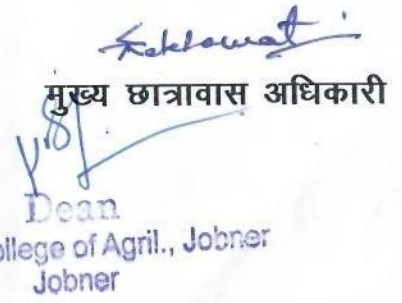 मुख्य छात्रावास अधिकारी
Dean
ollege of Agril., Jobner
Jobner